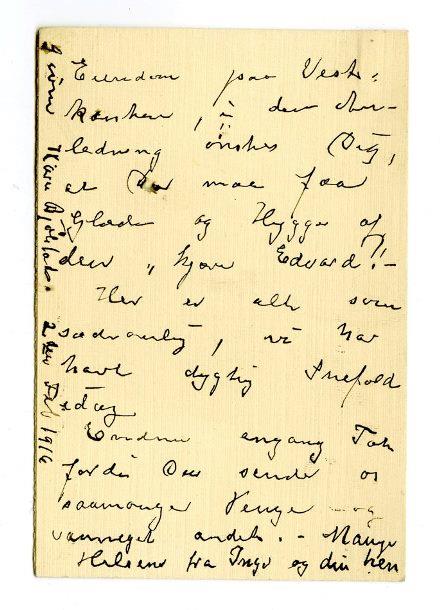 Eiendom paa Vest-
kanten, i den An-
ledning ønskes Dig,
at Du maa faa
Glæde og Hygge af
den, kjære Edvard!! -
Her er alt som
sædvanlig, vi har
havt dygtig Snefold
idag
Endnu engang Tak
fordi Du sender os
saamange Penge og
saameget andet. - Mange
Hilsener fra Inga og din hen
2den Feb 1916